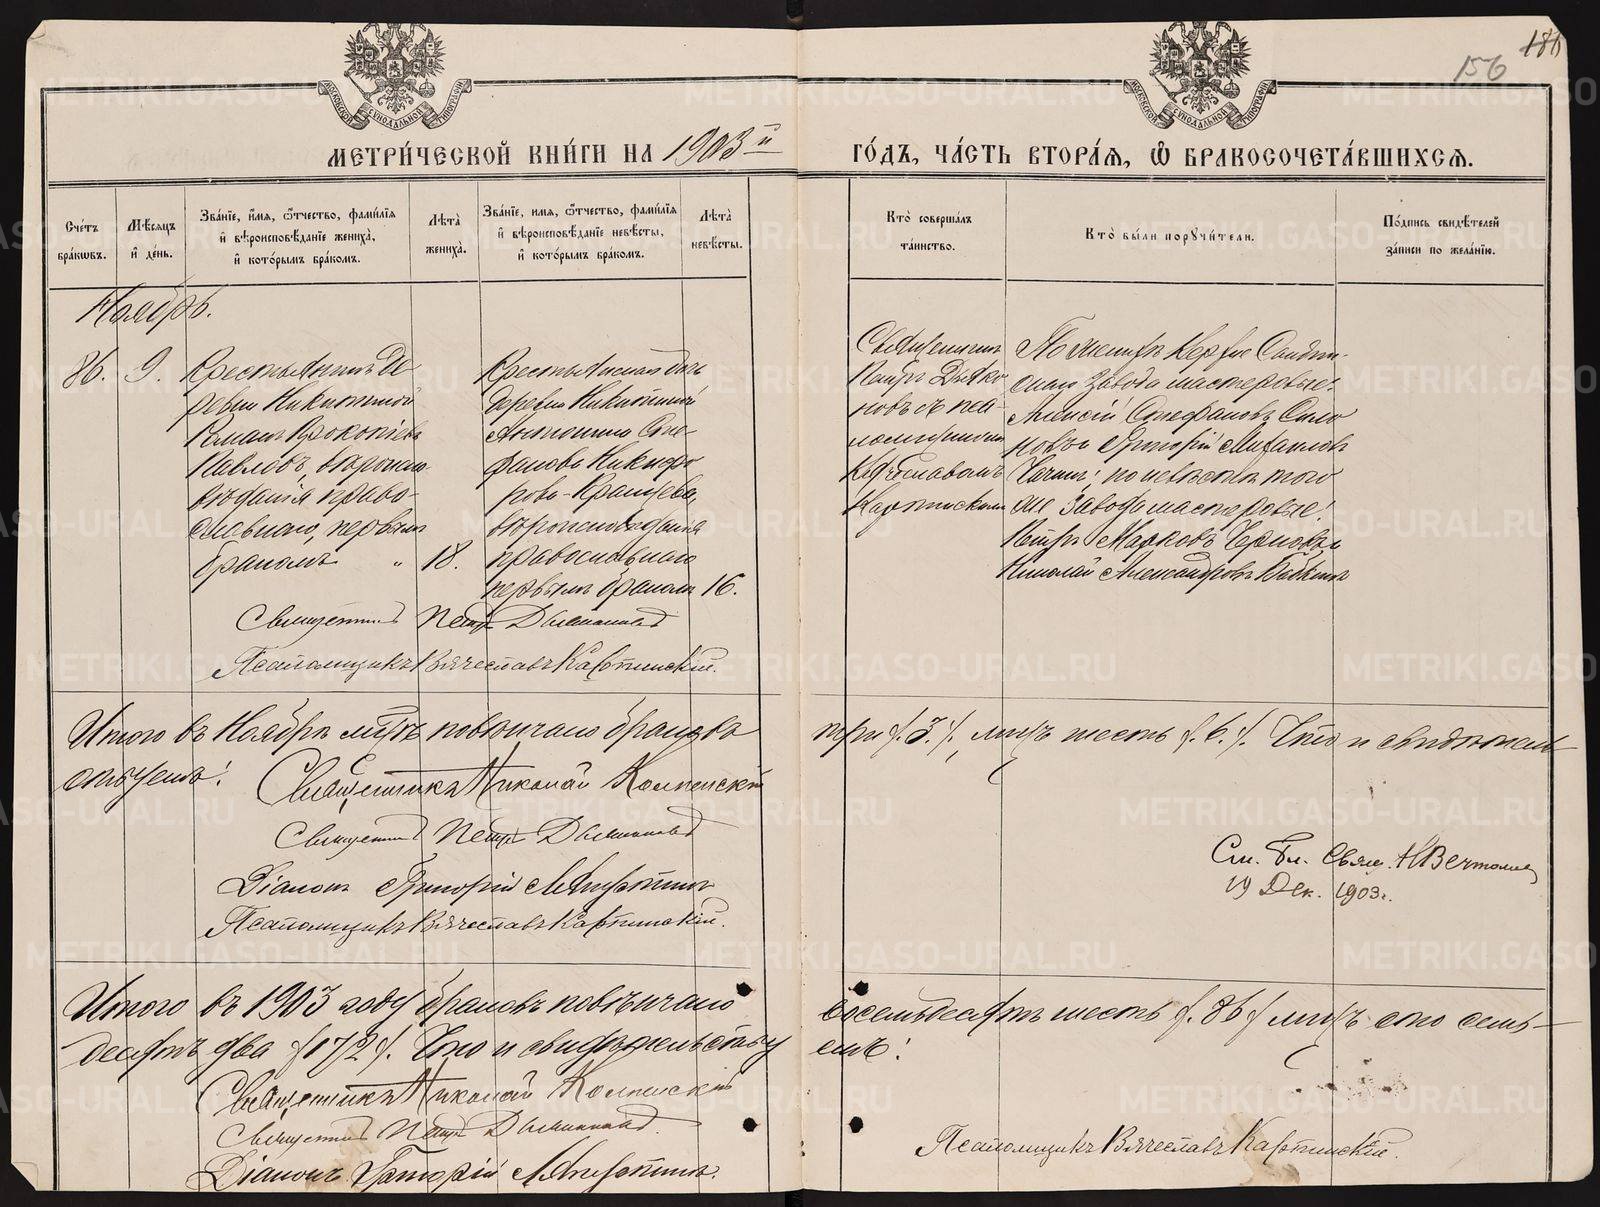 186
156
МЕТРИ́ЧЕСКОЙ КНИ́ГИ НА 1903й
ГО́ДЪ, ЧА́СТЬ ВТОРА́Я, Ѡ҆ БРАКОСОЧЕТА́ВШИХСЯ.
Сче́тъ бра́кѡвъ.
Мѣ́сяцъ и҆ де́нь.
Зва́нїе, и҆́мя, ѻ҆́тчество, фами́лїя и҆ вѣроисповѣ́данїе жениха̀, и҆ кото́рымъ бра́комъ.
Лѣта̀ жениха̀.
Зва́нїе, имя, ѻ҆́тчество, фами́лїя и҆ вѣроисповѣ́данїе невѣ́сты, и҆ кото́рымъ бра́комъ.
Лѣта̀ невѣ́сты.
Кто̀ соверша́лъ та́инство.
Кто̀ бы́ли порꙋчи́тели.
По́дпись свидѣ́телей за́писи по жела́нїю.
Ноябрь.
86. 9.
Крестьянинъ де
ревни Никитиной
Романъ Прокопіевъ
Павловъ, вѣроиспо
вѣданія право-
славнаго, первымъ
бракомъ „ 18.
Крестьянская дочь
деревни Никитиной
Антонина Сте-
фанова Никифо
рова-
вѣроисповѣданія
православнаго
первымъ бракомъ 16.
Священникъ
Петръ Дьяко
новъ съ пса-
ломщикомъ
Вячеславомъ
Карпинскимъ
По женихѣ
завода мастеровые:
Алексій Стефановъ
Григорій
по невѣстѣ того
же завода мастеровые:
Петръ Марковъ Черновъ и
Николай Александровъ Бабкинъ
Священникъ Петръ Дьяконовъ
Псаломщикъ Вячеславъ Карпинскій.
Итого въ Ноябрѣ мѣсяцѣ повѣнчано браковъ
три /.3./., лицъ шесть /.6./. Что и свидѣтель
ствуемъ:
Священникъ Николай
Священникъ Петръ Дьяконовъ
Діаконъ Григорій
Псаломщикъ Вячеславъ Карпинскій.
См. Бл. Свящ.
19 Дек. 1903 г.
Итого въ 1903 году браковъ повѣнчано
восемьдесятъ шесть /.86/. лицъ сто семь-
десятъ два /172/. Что и свидѣтельству
емъ:
Священникъ Николай
Священникъ Петръ Дьяконовъ.
Діаконъ Григорій
Псаломщикъ Вячеславъ Карпинскій.
METRIKI.GASO-URAL.RU